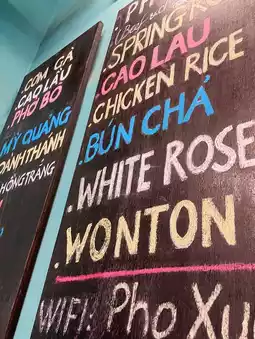 CƠM GÀ
CAO LẦU
PHỞ BÒ
MỲ QUẢNG
HOÀNH THÁNH
SPRING RO
CAO LAU
CHICKEN RICE
BÚN CHẢ
WHITE ROSE
WONTON
WIFI: Pho Xu